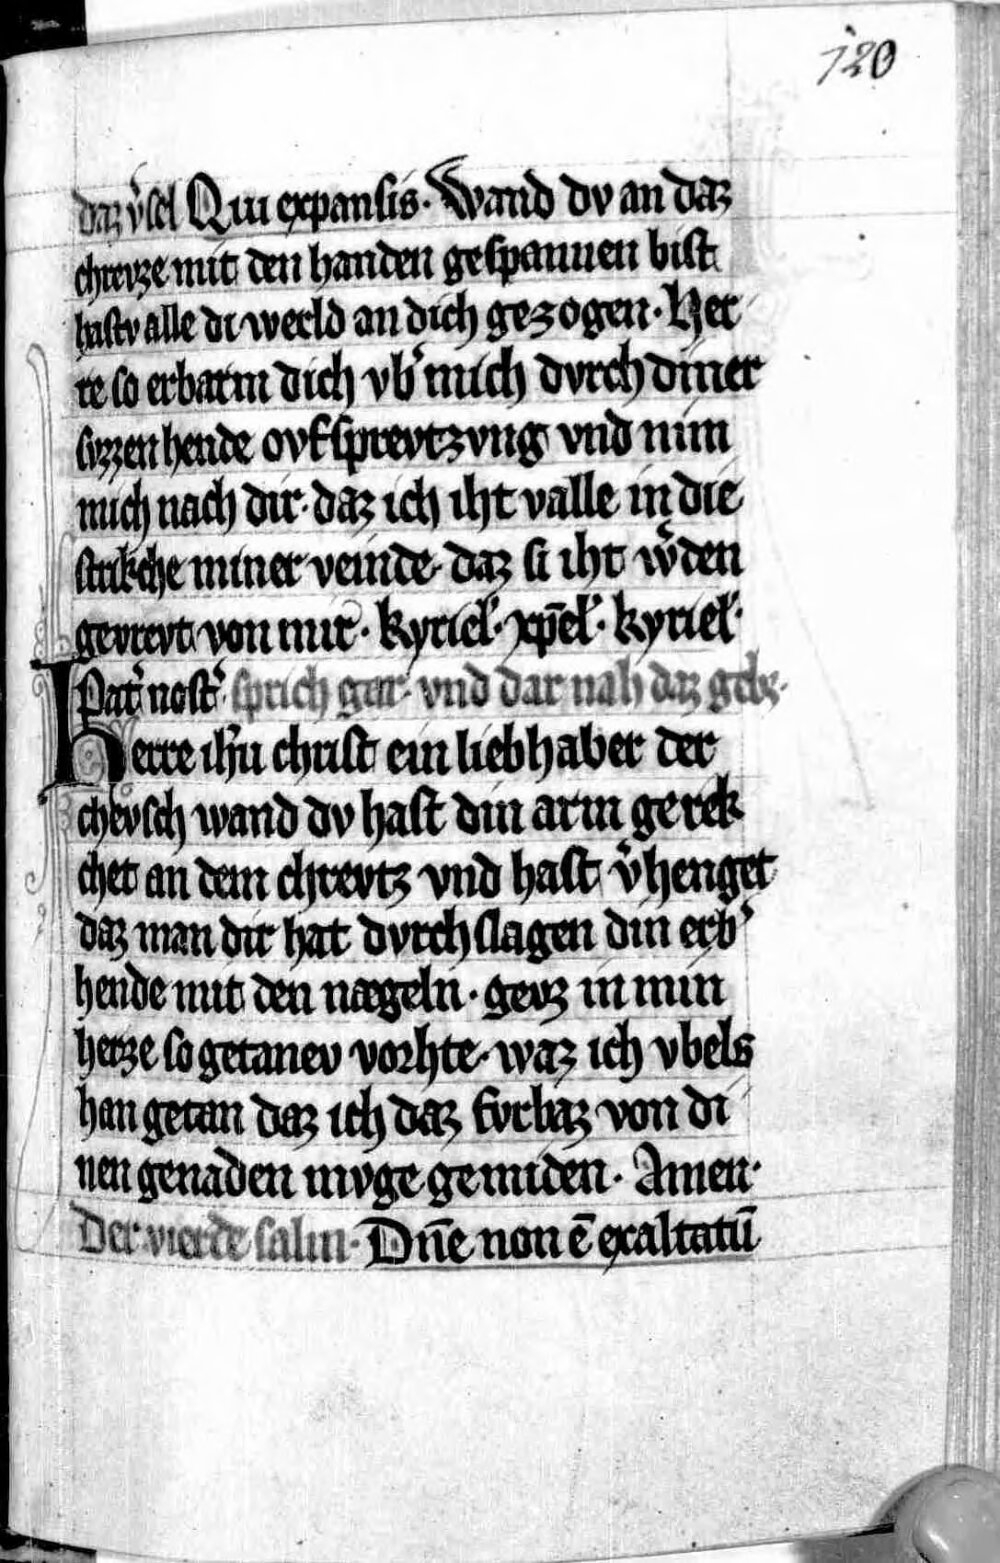 120
daz v͛sel Qui expansis. Wand dv an daz
chrevze mit den handen gespannen bist
hastv alle di werld an dich gezogen. Her
re so erbarm dich vb͛ mich dvrch diner
svzzen hende ovfsprevtzvng vnd nim
mich nach dir. daz ich iht valle in die
strikche miner veinde. daz si iht w͛den
gevrevt von mir. kyriel͛. xp̄el͛. kyriel͛.
Pat͛ nost͛. sprich gar. vnd dar nah daz gebz.
Herre ih̄u christ ein liebhaber der
chevsch wand dv hast din arm gerek
chet an dem chrevtz vnd hast v͛henget
daz man dir hat dvrch slagen din erb͛
hende mit den nægeln. gevz in min
herze so getanev vorhte. waz ich vbels
han getan daz ich daz fvrbaz von di
nen genaden mvge gemiden. Amen.
Der vierde salm. Dn̄e non ē exaltatū